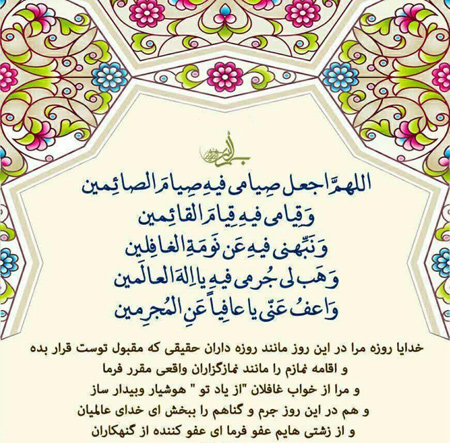 اللهمَّ اجعل صِيامی فيهِ صِيامَ الصائِمين
وَ قِيامی فيهِ قِيامَ القائِمين
وَ نَبِّهنی فيهِ عَن نَومَةِ الغافِلين
وَ هَب لی جُرمی فيهِ يا اِلهَ العالَمين
وَ اعفُ عَنّی يا عافِياً عَنِ المُجرِمين
خدایا روزه مرا در این روز مانند روزه داران حقیقی که مقبول توست قرار بده
و اقامه نمازم را مانند نمازگزاران واقعی مقرر فرما
و مرا از خواب غافلان "از یاد تو " هوشیار وبیدار ساز
و هم در این روز جرم و گناهم را ببخش ای خدای عالمیان
و از زشتی هایم عفو فرما ای عفو کننده از گنهکاران